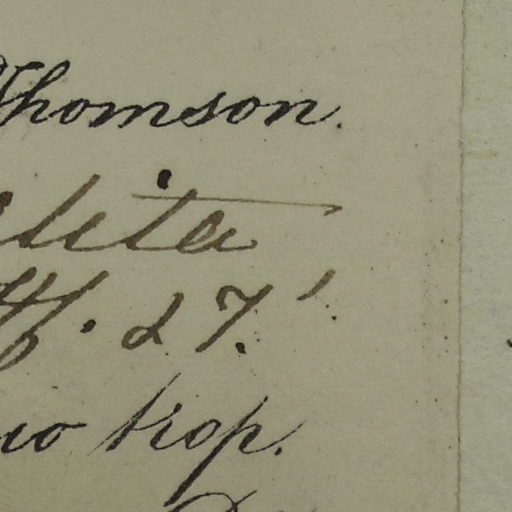 Thomson.
lita
ff. 27.'
no trop.